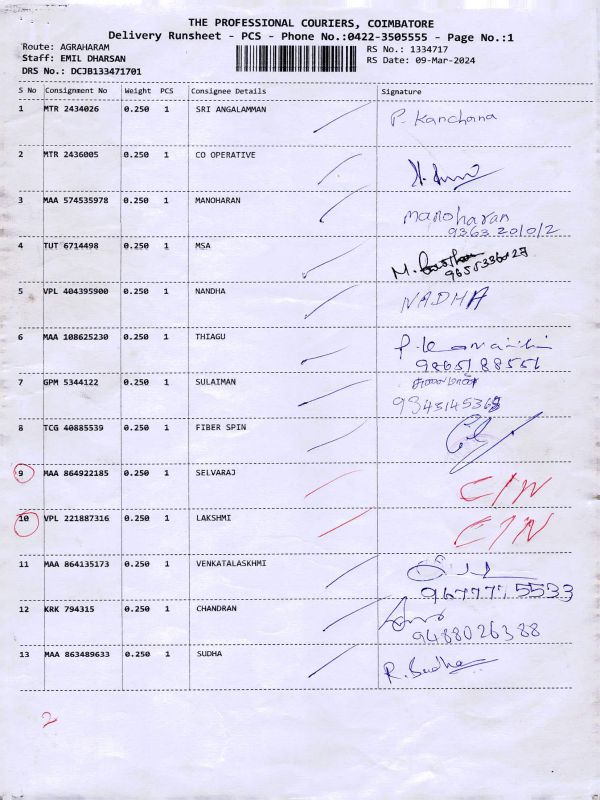 THE PROFESSIONAL COURIERS, COIMBATORE
Delivery Runsheet - PCS - Phone No.:0422-3505555 - Page No.:1
Route: AGRAHARAM RS No.: 1334717
Staff: EMIL DHARSAN RS Date: 09-Mar-2024
DRS No.: DCJB133471701
S No Consignment No Weight PCS Consignee Details Signature
1 MTR 2434026 0.250 1 SRI ANGALAMMAN P. Kanchana
2 MTR 2436005 0.250 1 CO OPERATIVE
3 MAA 574535978 0.250 1 MANOHARAN manoharan
9363201012
4 TUT 6714498 0.250 1 MSA M.
5 VPL 404395900 0.250 1 NANDHA NADHA
6 MAA 108625230 0.250 1 THIAGU P.
9865188556
7 GPM 5344122 0.250 1 SULAIMAN
8 TCG 40885539 0.250 1 FIBER SPIN
9 MAA 864922185 0.250 1 SELVARAJ C/N
10 VPL 221887316 0.250 1 LAKSHMI C/N
11 MAA 864135173 0.250 1 VENKATALASKHMI
9677775533
12 KRK 794315 0.250 1 CHANDRAN
9488026388
13 MAA 863489633 0.250 1 SUDHA R. Sudha
2